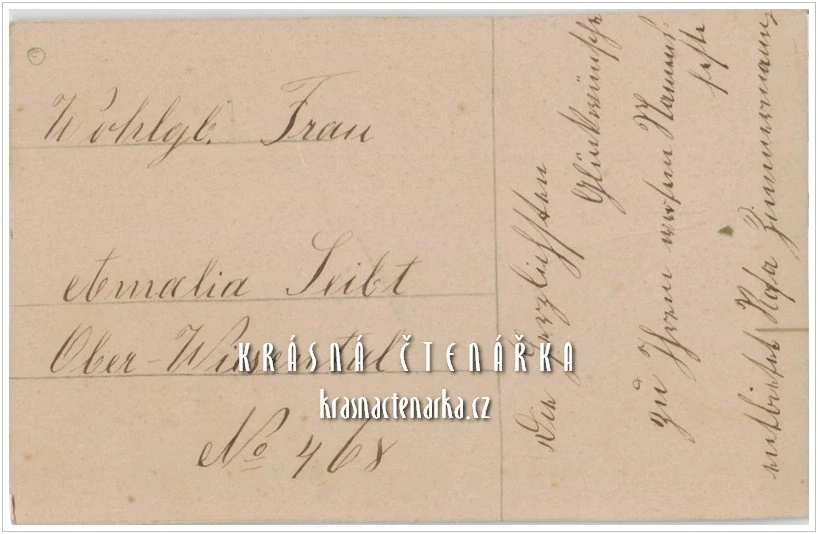 Wohlgb. Frau
Amalia Seibt
Ober-Wiesental
No 468
KRÁSNÁ ČTENÁŘKA
krasnactenarka.cz
Die herzlichsten
Glückwünsche
zu Ihrem werten Namens
feste
entbietet Rosa Zimmermann